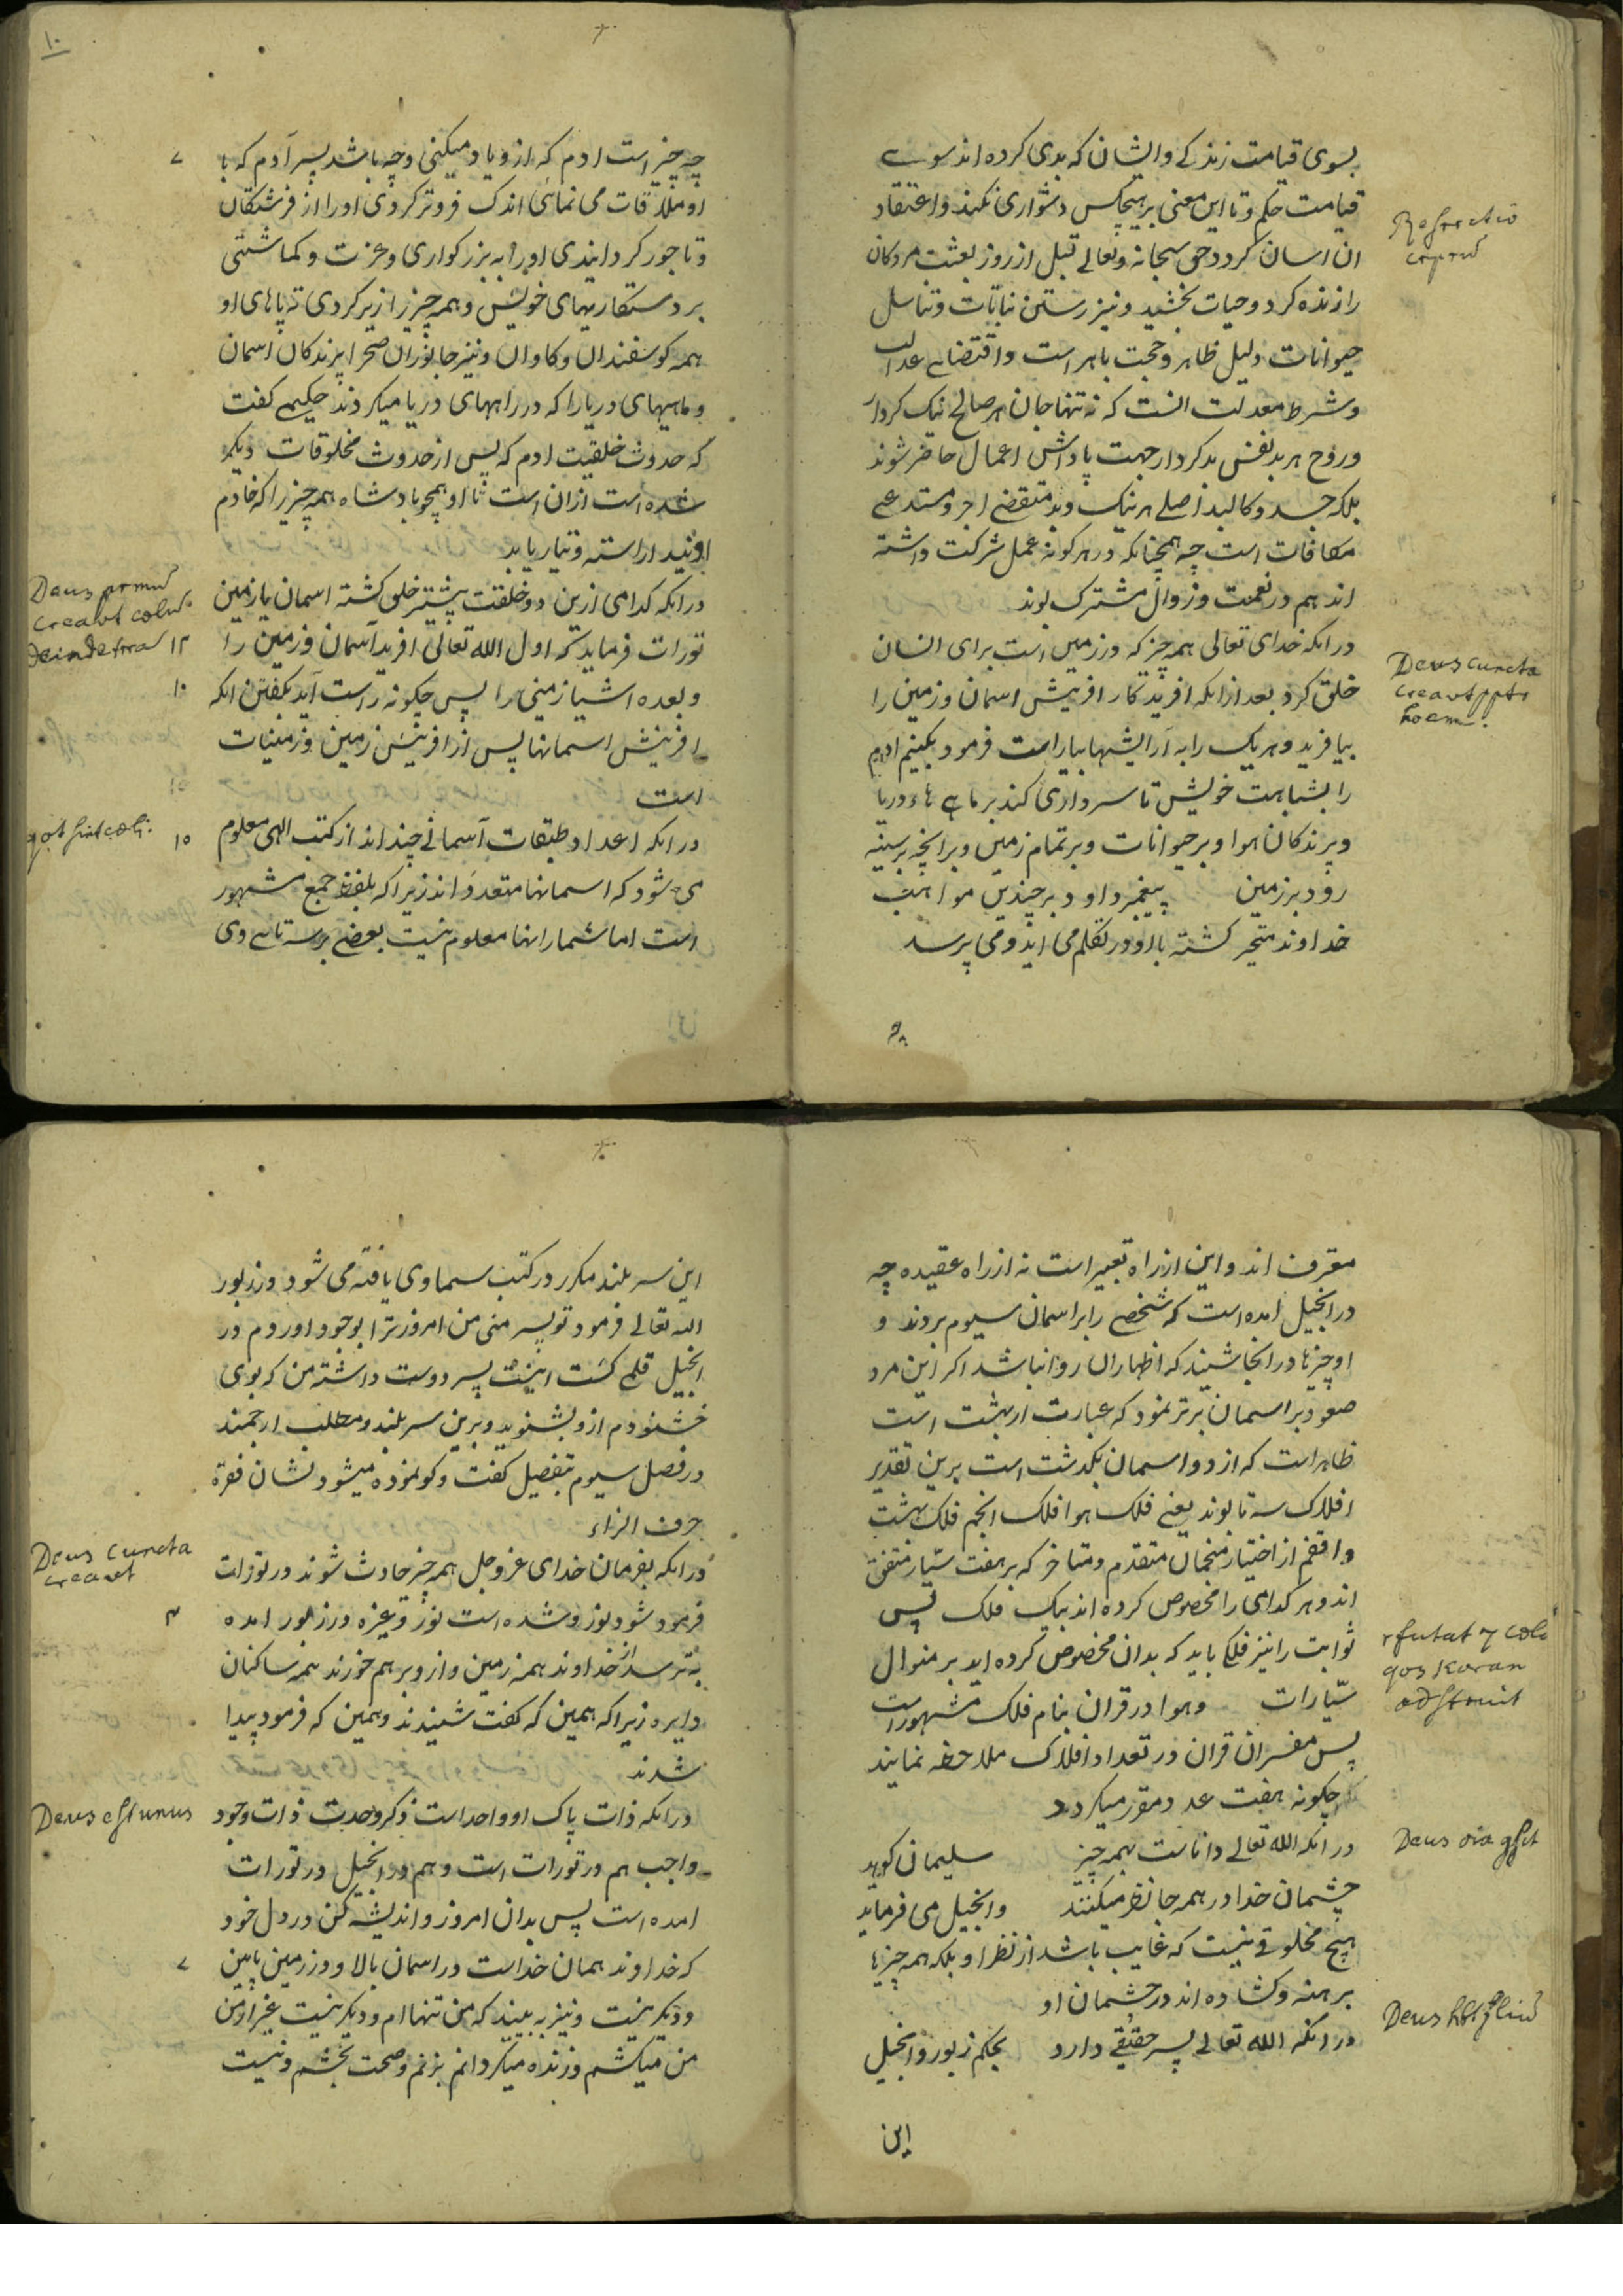 بسوی قیامت زندکی وایشان که بدی کرده اند سوی
Resrectio
قیامت حکم وتا این معنی بر هیچکس دشواری نکند واعتقاد
corpru
ان اسان کردد حق سبحانه وتعالے قبل از روز بعثت مردکان
را زنده کرد وحیات بخشید ونیز رستن نباتات وتناسل
حیوانات دلیل ظاهر وحجت باهر است واقتضاے عدالت
وشرط معدلت انست که نه تنها جان هر صالح نیک کردار
وروح هر بد نفس بدکردار جهت پاداش اعمال حاضر شوند
بلکه جسد وکالبد اصلے هر نیک وبد متقضے اجر ومستدعے
مکافات است چه همچنانکه در هر کونه عمل شرکت داشته
اند هم در نعمت وزوال مشترک بوند
در انکه خدای تعالی همه چیز که در زمین است برای انسان
Deus cuncta
خلق کرد بعد از انکه افریدکار افرینش اسمان وزمین را
creavt ppter
hoem.
بیافرید وهر یک را به آرایشها بیاراست فرمود بکنیم ادم
را بشباهت خویش تا سرداری کند بر ماهے هاء دریا
وپرندکان هوا وبر حیوانات وبر تمام زمین وبر انچه بر سینه
رود بر زمین پیغمبر داود بر چندین مواهب
خداوند متحیر کشته با او در تکلم می اید ومی پرسد
١٠
چه چیز است ادم که ازو یاد میکنی وچه باشد پسر آدم که با
او ملاقات می نمائی اندک فروتر کردی اورا از فرشتکان
وتاجور کردانیدی اورا به بزرکواری وعزت وکماشتی
بر دستکاریهای خویش وهمه چیز را زیر کردی ته پاهای او
همه کوسفندان وکاوان ونیز جانوران صحرا پرندکان اسمان
وماهیهای دریا را که در راههای دریا میکردند حکیمے کفت
که حدوث خلقیت ادم که پس از حدوث مخلوقات دیکر
شده است ازان است تا او همچو بادشاه همه چیز را که خادم
اویند اراسته وتیار یابد
در انکه کدامی ازین دو خلقت پیشتر خلق کشته اسمان یا زمین
Deus prmu
creavt colu
deinde trra
تورات فرماید که اول الله تعالی افرید آسمان وزمین را
وبعده اشیاء زمینی را پس چکونه راست آید بکفتن انکه
افرینش اسمانها پس از افرینش زمین وزمینات
است
در انکه اعداد طبقات آسمانے چند اند از کتب الهی معلوم
qot sint coli.
می شود که اسمانها متعدد اند زیرا که بلفظ جمع مشهور
است اما شمار انها معلوم نیست بعضے بر سه تاے وی
معرف اند واین از راه تعبیر است نه از راه عقیده چه
در انجیل امده است که شخصے را بر اسمان سیوم بردند و
او چیزها در انجا شنید که اظهار ان روا نباشد اکر این مرد
صعود بر اسمان برتر نمود که عبارت از بهشت است
ظاهر است که از دو اسمان بکذشت است برین تقدیر
افلاک سه تا بوند یعنے فلک هوا فلک انجم فلک بهشت
واقفم از اختیار منجمان متقدم ومتاخر که بر هفت سیّار متفق
اند وهر کدامی را مخصوص کرده اند بیک فلک پس
ثوابت را نیز فلکے باید که بدان مخصوص کرده اید بر منوال
rfutat 7 colos
qos Koran
adstruit
سیّارات وهوا در قران بنام فلک مشهور است
پس مفسران قران در تعداد افلاک ملاحظه نمایند
چکونه هفت عدد مقرر میکردد
در انکه الله تعالے داناست بهمه چیز سلیمان کوید
Deus oia
چشمان خدا در همه جا نظر میکنند وانجیل می فرماید
هیچ مخلوقے نیست که غایب باشد از نظر او بلکه همه چیزها
برهنه وکشاده اند در چشمان او
در انکه الله تعالے پسر حقیقے دارد بحکم زبور وانجیل
Deus
این
این سر بلند مکرر در کتب سماوی یافته می شود در زبور
الله تعالے فرمود تو پسر منی من امروز ترا بوجود اوردم در
انجیل قلمے کشت اینست پسر دوست داشته من که بوی
خشنودم ازو بشنوید وبرین سر بلند ومطلب ارجمند
در فصل سیوم بتفصیل کفت وکو نموده میشود نشان فقره
حرف الزاء
در انکه بفرمان خدای عز وجل همه چیز حادث شوند در تورات
Deus cuncta
creavt
فرمود شود نور وشده است نور وغیره در زبور امده
بترسد از خداوند همه زمین وازو برهم خورند همه ساکنان
دایره زیرا که همین که کفت شنیدند وهمین که فرمود پیدا
شدند
در انکه ذات پاک او واحد است ذکر وحدت ذات وجود
Deus est unus
واجب هم در تورات است وهم در انجیل در تورات
امده است پس بدان امروز واندیشه کن در دل خود
که خداوند همان خداست در اسمان بالا ودر زمین پایین
ودیکر نیست ونیز به بیند که من تنها ام ودیکر نیست غیر از من
من میکشم وزنده میکردانم بزنم وصحت بخشم ونیست